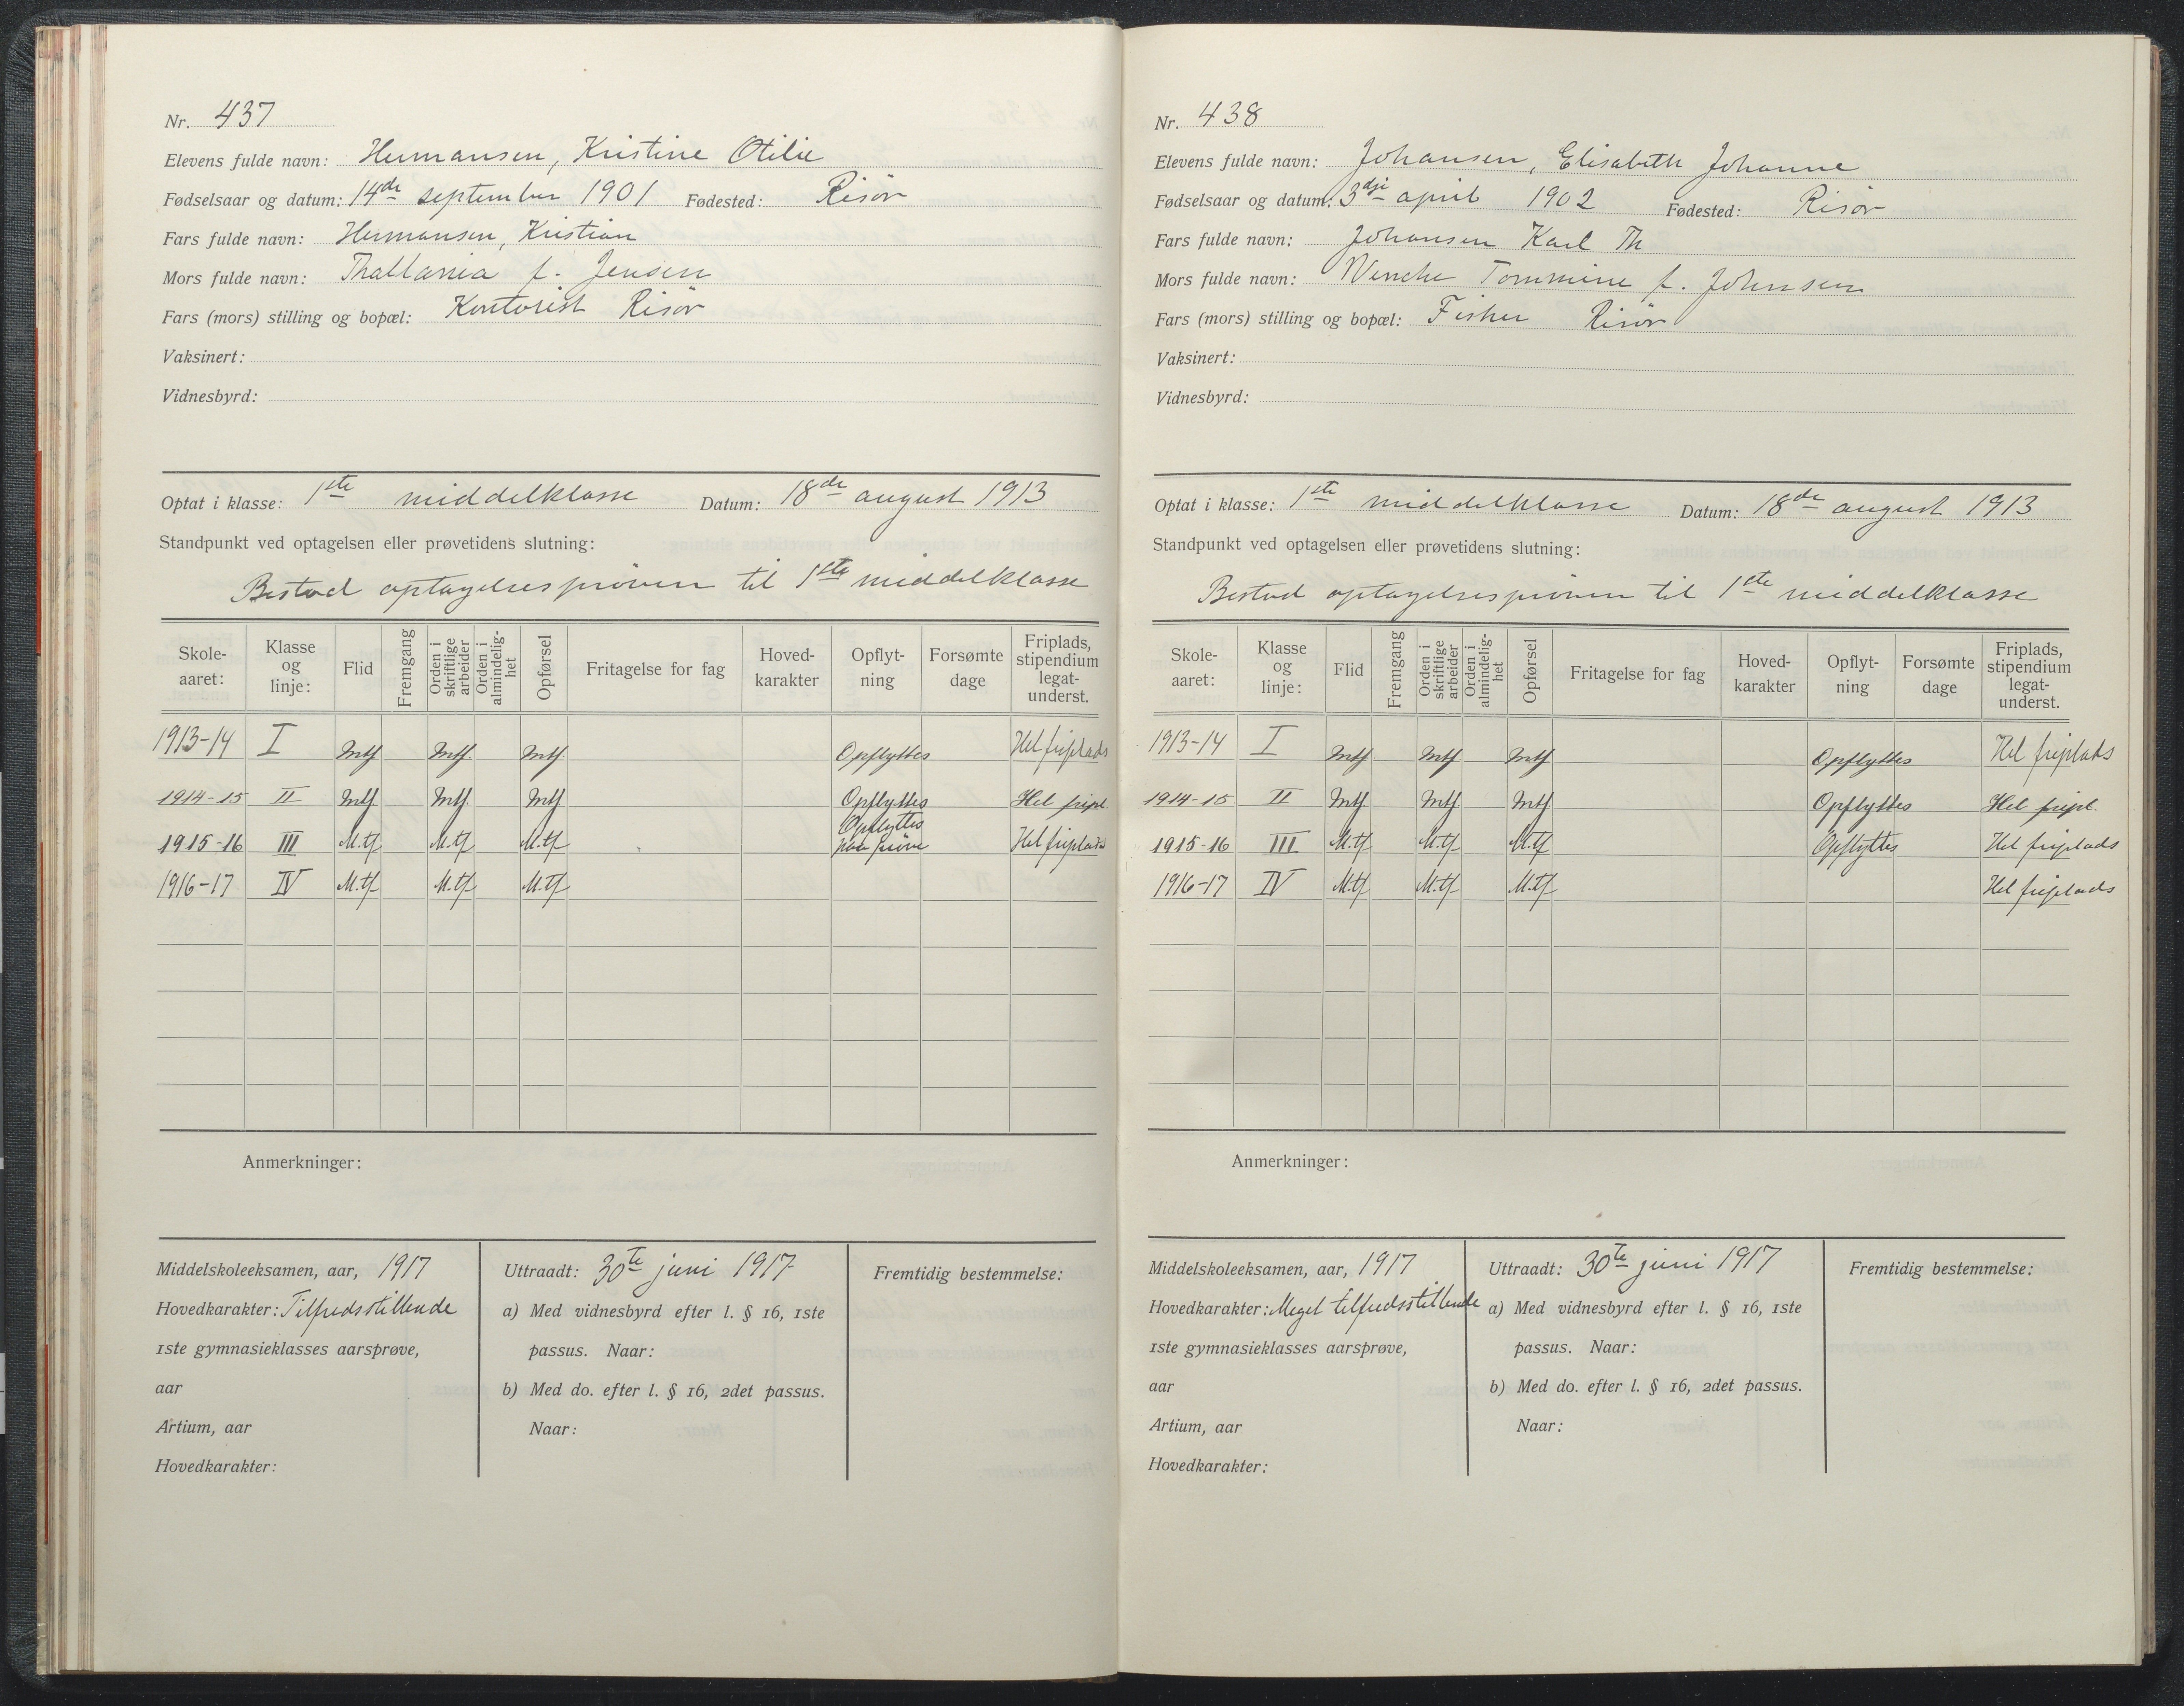 Nr. 437
Elevens fulde navn: Hermansen, Kristine Otilie
Fødselsaar og datum: 14de september 1901 Fødested: Risør
Fars fulde navn: Hermansen, Kristian
Mors fulde navn: Thallania f. Jensen
Fars (mors) stilling og bopæl: Kontorist Risør
Vaksinert:
Vidnesbyrd:
Optat i klasse: 1ste middelklasse Datum: 18de august 1913
Standpunkt ved optagelsen eller prøvetidens slutning:
Bestod optagelsesprøven til 1ste middelklasse
Skole-aaret: Klasse og linje: Flid Fremgang Orden i skriftlige arbeider Orden i almindelig-het Opførsel Fritagelse for fag Hoved-karakter Opflyt-ning Forsømte dage Friplads, stipendium legat-underst.
1913-14 I Mtf Mtf. Mtf. Opflyttes Hel friplads
1914-15 II Mtf Mtf. Mtf Opflyttes Hel fripl.
1915-16 III M.tf M.tf M.tf Opflyttes paa prøve Hel friplads
1916-17 IV M.tf M.tf M.tf
Anmerkninger:
Middelskoleeksamen, aar, 1917
Hovedkarakter: Tilfredsstillende
1ste gymnasieklasses aarsprøve,
aar
Artium, aar
Hovedkarakter:
Uttraadt: 30te juni 1917
a) Med vidnesbyrd efter l. § 16, 1ste
passus. Naar:
b) Med do. efter l. § 16, 2det passus.
Naar:
Fremtidig bestemmelse:
Nr. 438
Elevens fulde navn: Johansen, Elisabeth Johanne
Fødselsaar og datum: 3dje april 1902 Fødested: Risør
Fars fulde navn: Johansen Karl Th
Mors fulde navn: Wenche Tommine f. Johnsen
Fars (mors) stilling og bopæl: Fisker Risør
Vaksinert:
Vidnesbyrd:
Optat i klasse: 1ste middelklasse Datum: 18de august 1913
Standpunkt ved optagelsen eller prøvetidens slutning:
Bestod optagelsesprøven til 1ste middelklasse
Skole-aaret: Klasse og linje: Flid Fremgang Orden i skriftlige arbeider Orden i almindelig-het Opførsel Fritagelse for fag Hoved-karakter Opflyt-ning Forsømte dage Friplads, stipendium legat-underst.
1913-14 I Mtf Mtf Mtf Opflyttes Hel friplads
1914-15 II Mtf Mtf Mtf Opflyttes Hel fripl.
1915-16 III M.tf M.tf M.tf Opflyttes Hel friplads
1916-17 IV M.tf M.tf M.tf Hel friplads
Anmerkninger:
Middelskoleeksamen, aar, 1917
Hovedkarakter: Meget tilfredsstillende
1ste gymnasieklasses aarsprøve,
aar
Artium, aar
Hovedkarakter:
Uttraadt: 30te juni 1917
a) Med vidnesbyrd efter l. § 16, 1ste
passus. Naar:
b) Med do. efter l. § 16, 2det passus.
Naar:
Fremtidig bestemmelse: